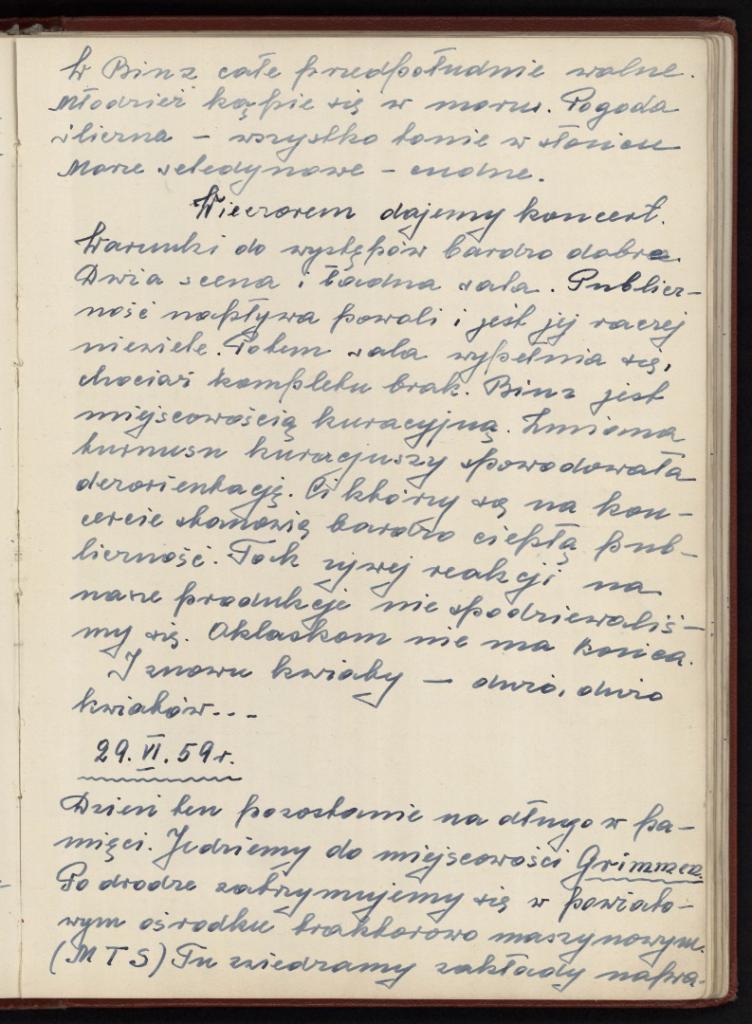 W Binz całe przedpołudnie wolne.
Młodzież kąpie się w morzu. Pogoda
śliczna – wszystko tonie w słońcu
Morze seledynowe – cudne.
Wieczorem dajemy koncert.
Warunki do występów bardzo dobre.
Duża scena i ładna sala. Publicz-
ność napływa powoli i jest jej raczej
niewiele. Potem sala wypełnia się,
chociaż kompletu brak. Binz jest
miejscowością kuracyjną. Zmiana
turnusu kuracjuszy spowodowała
dezorientację. Ci którzy są na kon-
cercie stanowią bardzo ciepłą pub-
liczność. Tak żywej reakcji na
nasze produkcje nie spodziewaliś-
my się. Oklaskom nie ma końca.
I znowu kwiaty – dużo, dużo
kwiatów...
29.VI.59r.
Dzień ten pozostanie na długo w pa-
mięci. Jedziemy do miejscowości Grimmen.
Po drodze zatrzymujemy się w powiato-
wym ośrodku traktorowo maszynowym.
(MTS) Tu zwiedzamy zakłady napra-